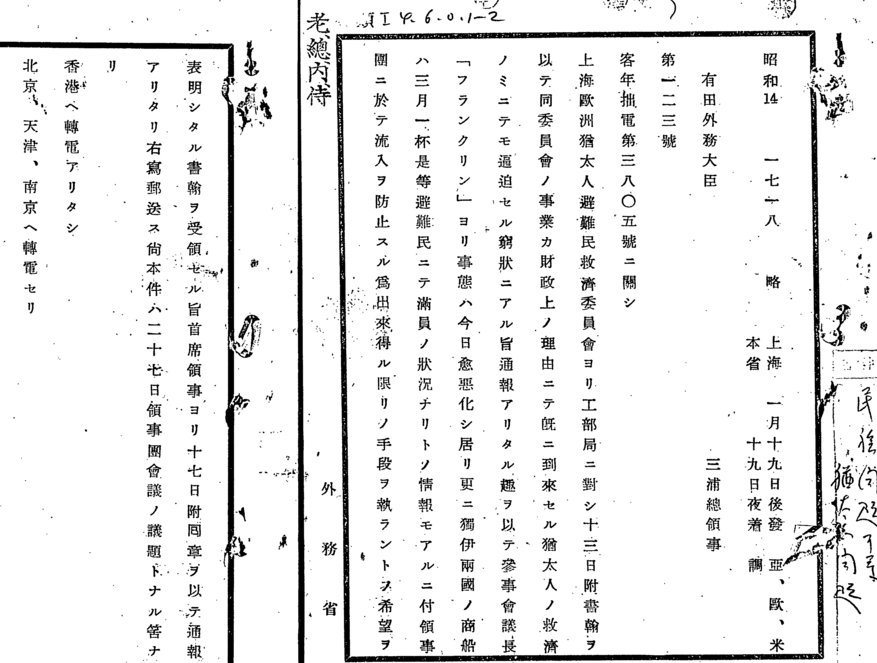 民族問題
猶太人問題
昭和14 一七一八 略 上海 一月十九日後發 亞、歐、米
本省 十九日夜着 調
有田外務大臣 三浦總領事
第一二三號
客年拙電第三八〇五號ニ關シ
上海歐洲猶太人避難民救濟委員會ヨリ工部局ニ對シ十三日附書翰ヲ
以テ同委員會ノ事業カ財政上ノ理由ニテ旣ニ到來セル猶太人ノ救濟
ノミニテモ逼迫セル窮狀ニアル旨通報アリタル趣ヲ以テ參事會議長
「フランクリン」ヨリ事態ハ今日愈惡化シ居リ更ニ獨伊兩國ノ商船
ハ三月一杯是等避難民ニテ滿員ノ狀況ナリトノ情報モアルニ付領事
團ニ於テ流入ヲ防止スル爲出來得ル限リノ手段ヲ執ラントノ希望ヲ
I 4.6.0.1-2
老總内侍
外務省
表明シタル書翰ヲ受領セル旨首席領事ヨリ十七日附囘章ヲ以テ通報
アリタリ右寫郵送ス尙本件ハ二十七日領事團會議ノ議題トナル筈ナ
リ
香港ヘ轉電アリタシ
北京、天津、南京ヘ轉電セリ